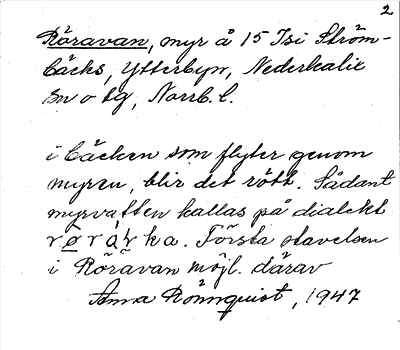 2
Röravan, myr å 15 Isi Ström-
bäcks, Ytterbyn, Nederkalix
sn o tg, Norrb. l.
i bäcken som flyter genom
myren, blir det rött. Sådant
myrvatten kallas på dialekt
rørárka. Första stavelsen
i Röravan möjl. därav
Anna Rönnquist, 1947